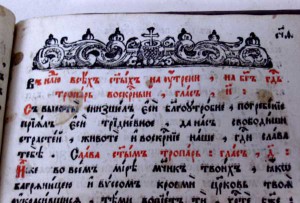 Въ н҃лю всѣ́хъ ст҃ы́хъ на ѹ҆́трени, на бг҃ъ гдⷭ҇ь
тропа́рь воскр҃сный, гла́съ, и҃:
Съ высоты̀ снизше́лъ є҆сѝ благоѹтро́бне, погребе́нїе
прїѧ́лъ є҆сѝ тридне́вное да на́съ свободи́ши
страсте́й, животѐ и҆ воскрⷭ҇нїе на́ше гдⷭ҇и сла́ва
тебѣ̀. Сла́ва ст҃ы́мъ тропа́рь гла́съ, д҃:
И҆́же во все́мъ ми́рѣ мч҃никъ твои́хъ, ꙗ҆́кѡ
багряни́цею и҆ вѵ́ссомъ кровьмѝ цр҃ковь твоѧ̀